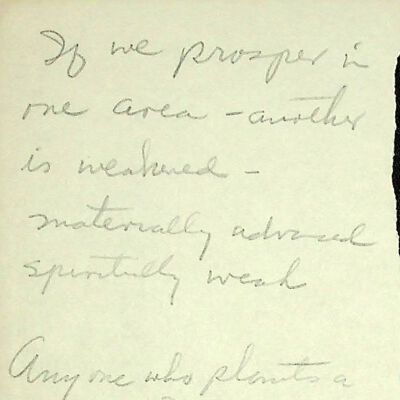 If we prosper in
one area - another
is weakened -
materially advanced
spiritully weak
Anyone who plants a